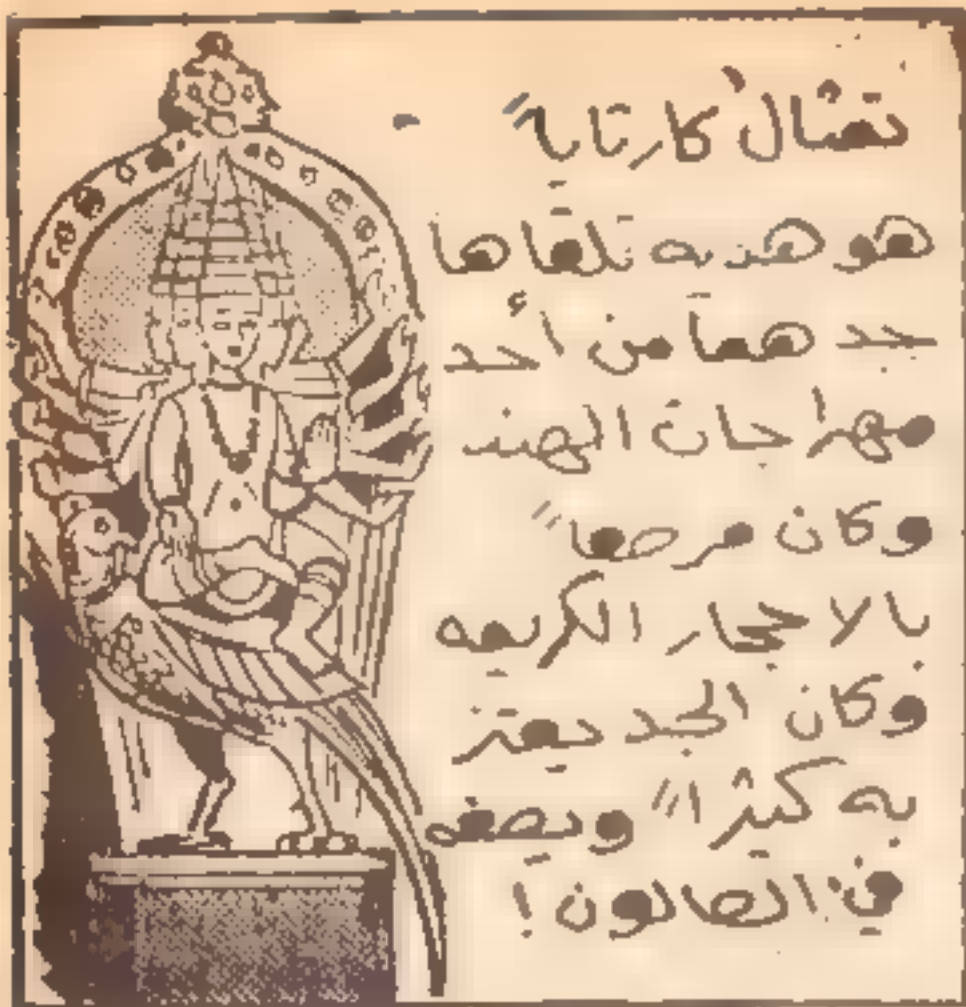 تمثال كارتاية"
هو هديه تلقاها
جدهما من أحد
مهراجات الهند
وكان مرصعا"
بالاحجار الكريمه
وكان الجد يعتز
به كثيرا" ويضعه
في الصالون!